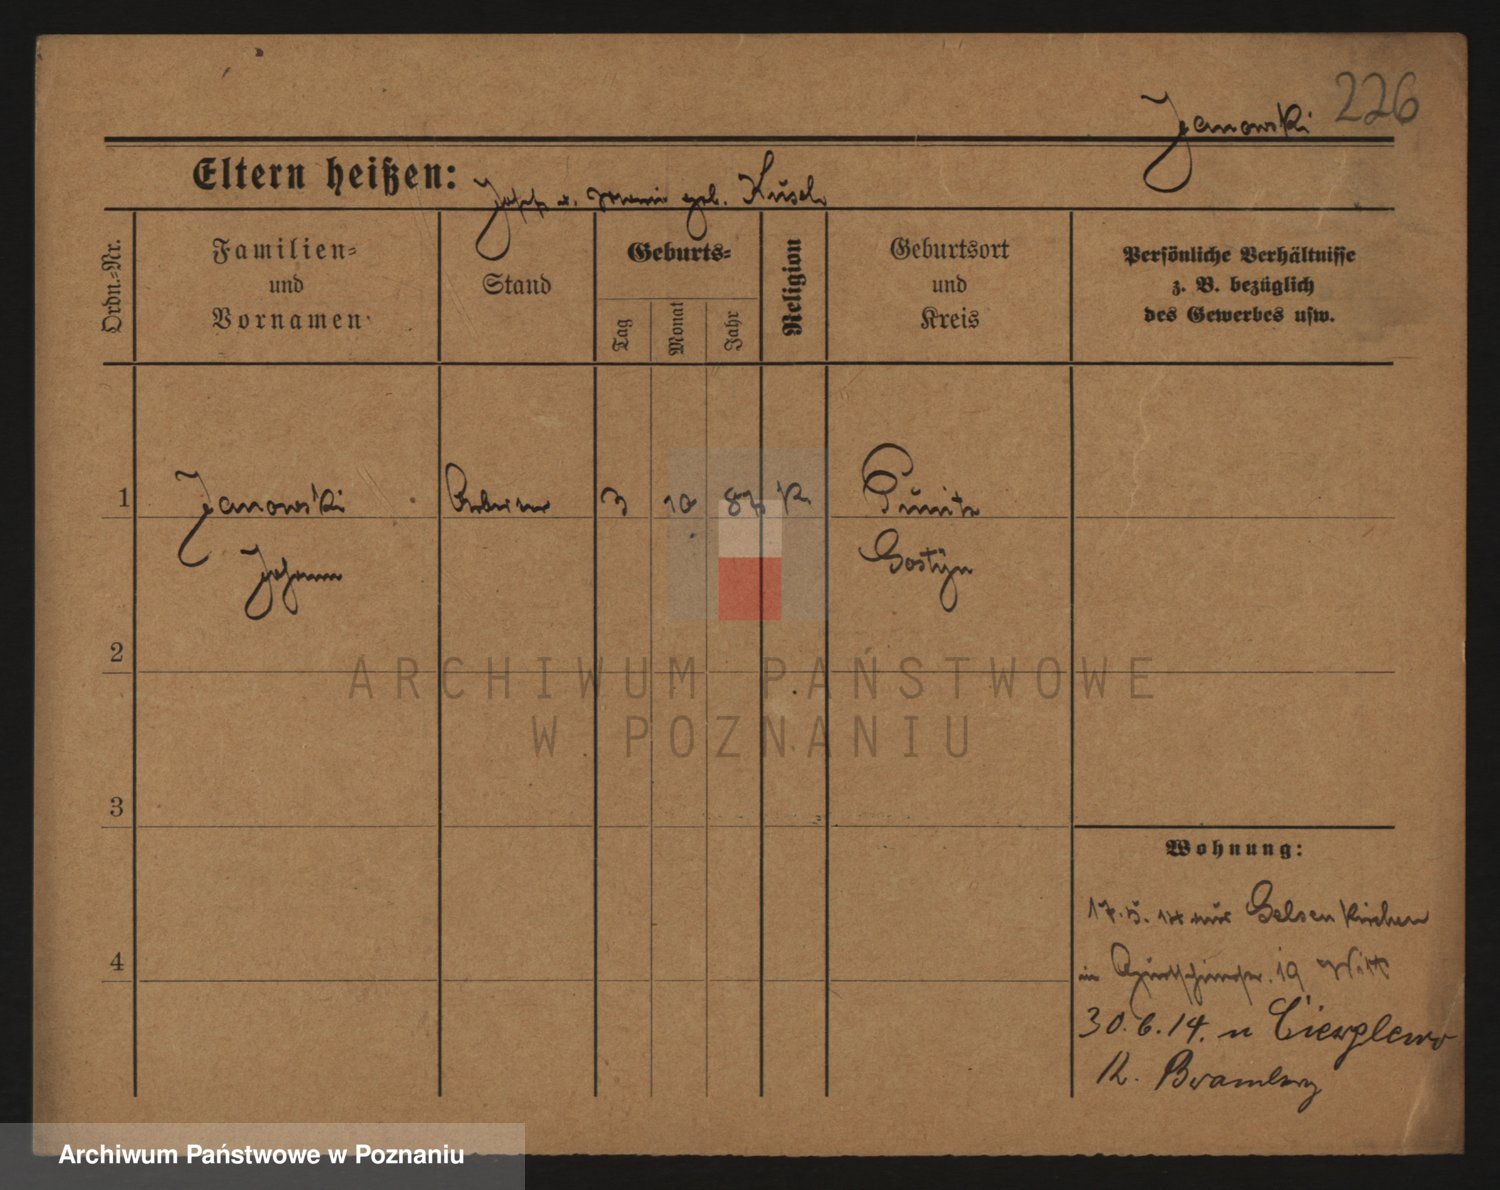 226
Janowski
Eltern heißen: Joseph u. Maria geb.
Ordn.-Nr.
Familien-
und
Vornamen
Stand
Geburts-
Tag
Monat
Jahr
Religion
Geburtsort
und
Kreis
Persönliche Verhältnisse
z. B. bezüglich
des Gewerbes usw.
1 Janowski Arbeiter 3 10 87 K. Punitz
Johann Gostyn
2
3
4
Wohnung:
17.5. Gelsenkirchen
in 19
30.6.14. n
K. Bromberg
ARCHIWUM PAŃSTWOWE
W POZNANIU
Archiwum Państwowe w Poznaniu